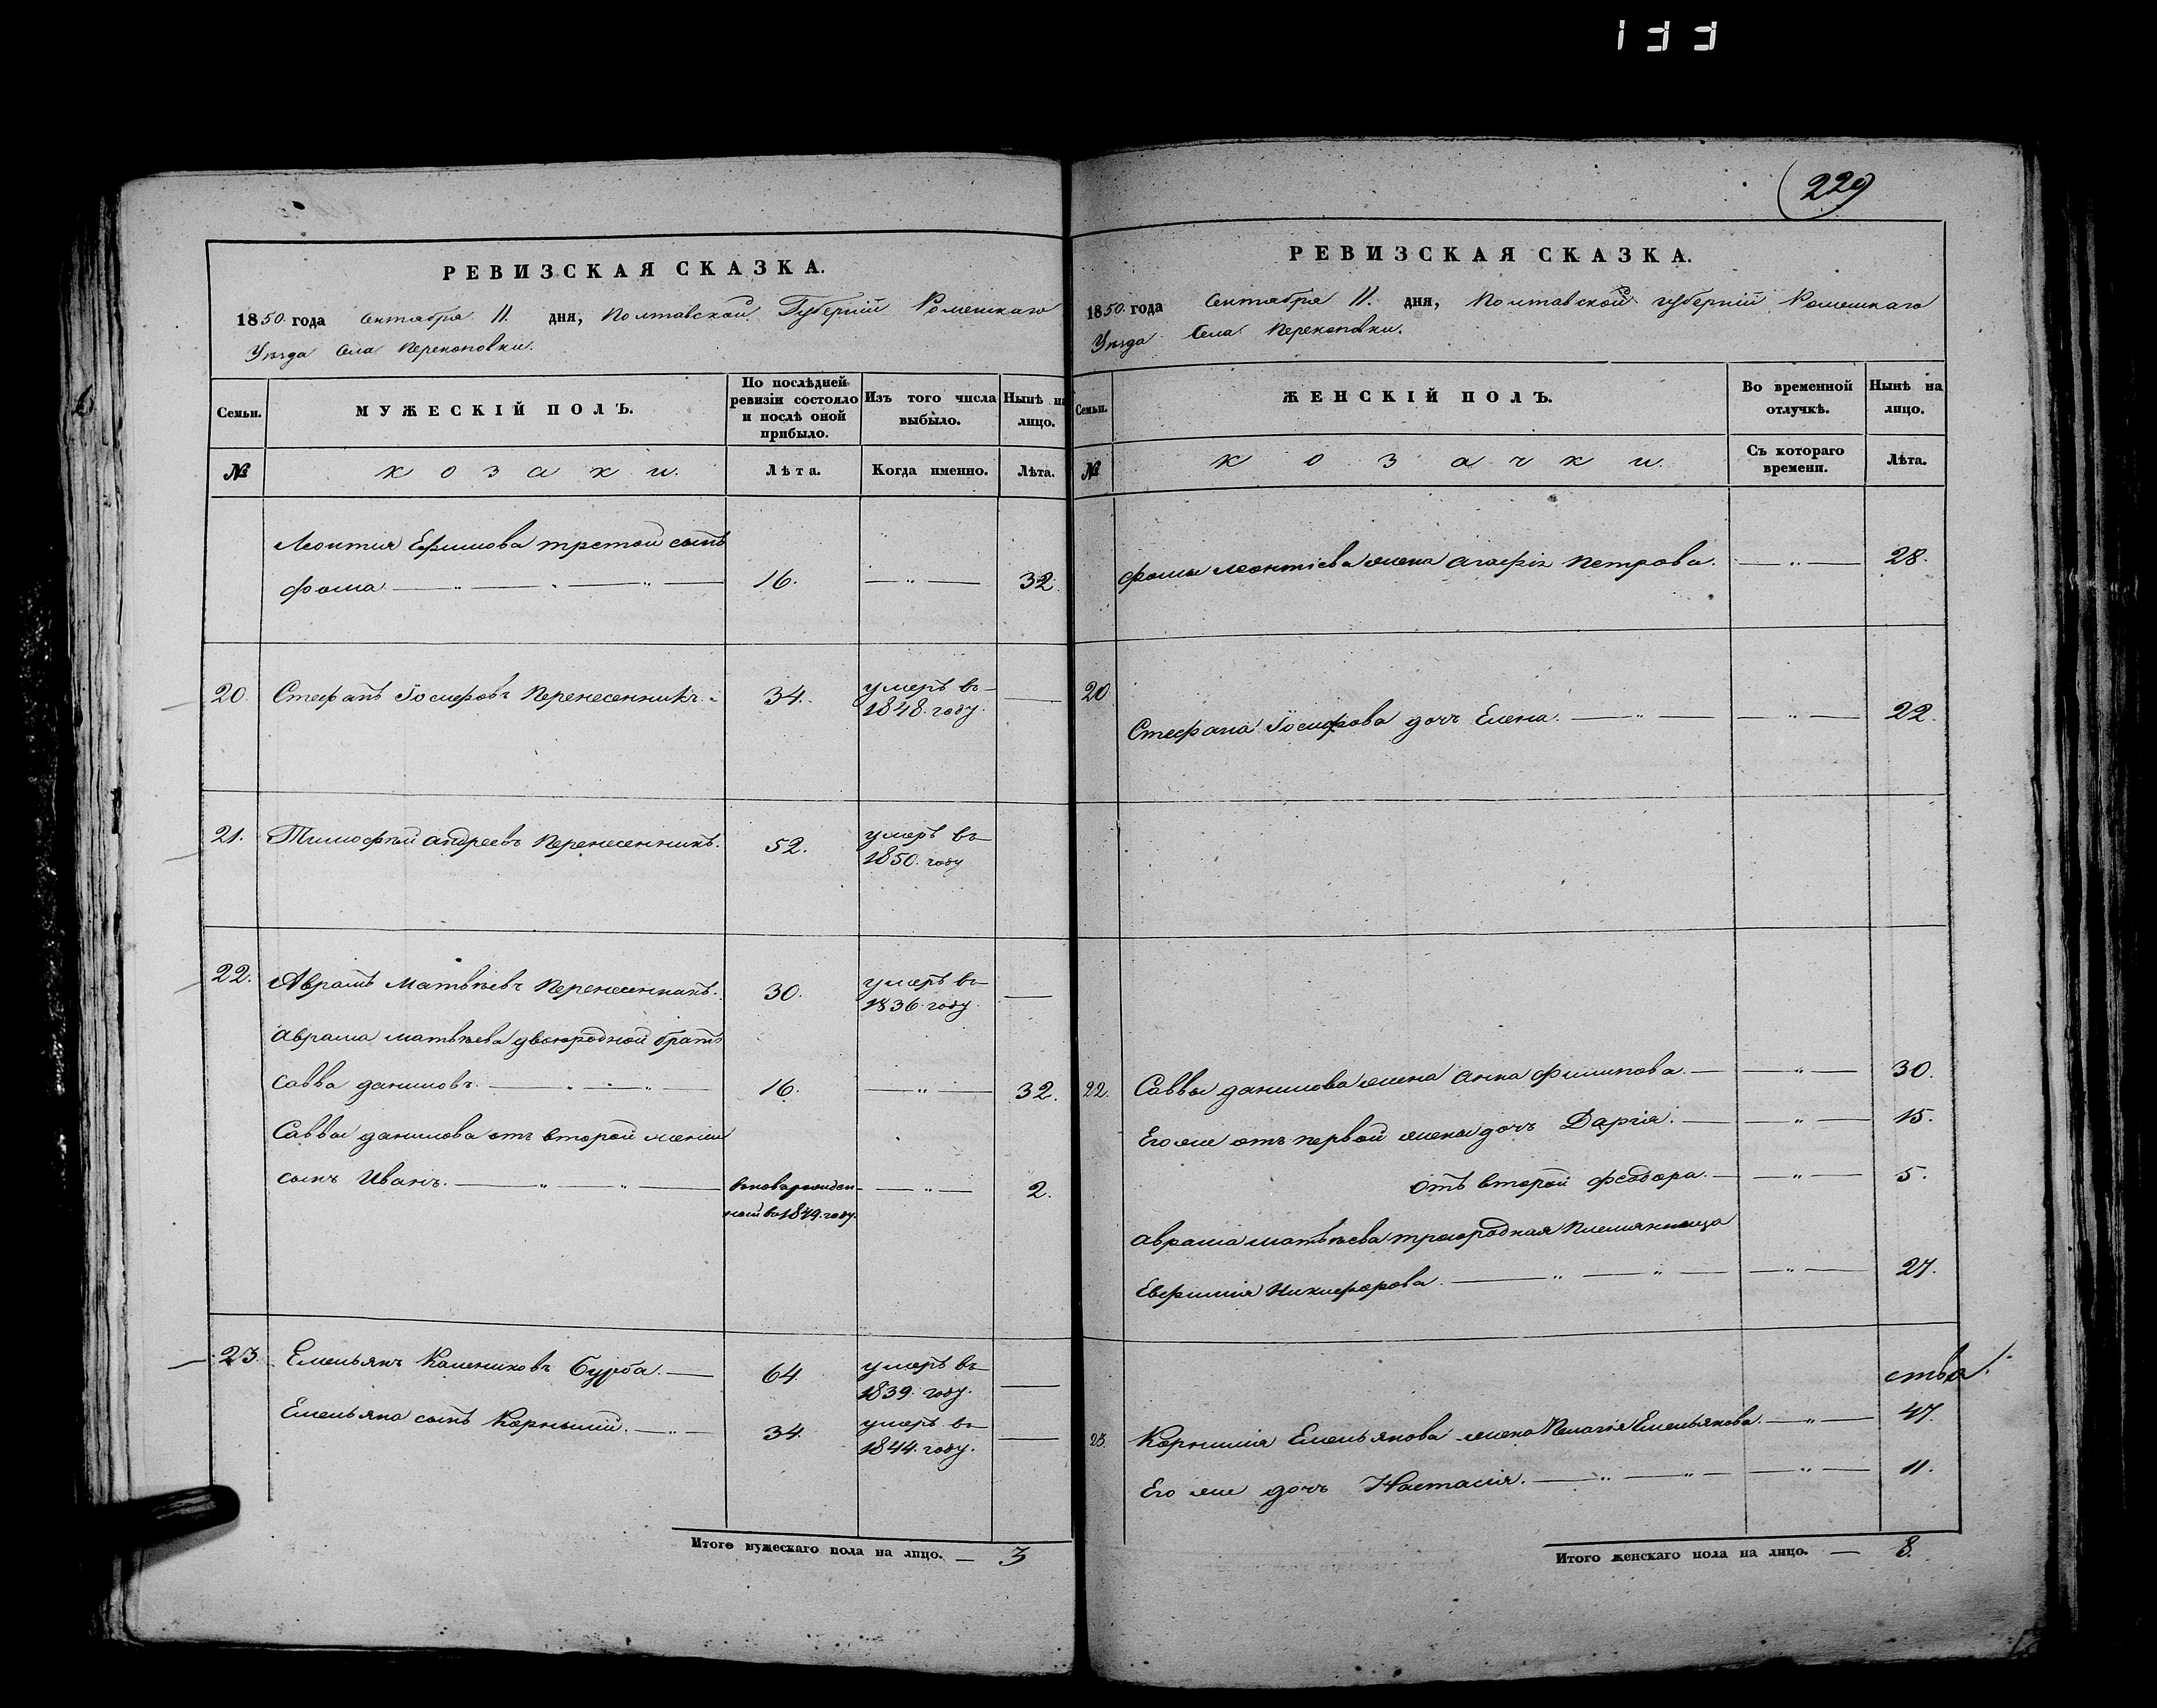 133
229
РЕВИЗСКАЯ СКАЗКА.
1850. года Сентября 11. дня, Полтавской Губерніи Роменскаго
Уѣзда Села Перекоповки.
Семьи.
МУЖЕСКІЙ ПОЛЪ.
По послѣдней ревизіи состояло и послѣ оной прибыло.
Изъ того числа выбыло.
Нынѣ на лицо.
№
козаки.
Лѣта.
Когда именно.
Лѣта.
Леонтия Ефимова третой сынъ
фома 16. 32.
20. Стефанъ Іосифовъ Перенесенникъ. 34. умеръ въ
1848. году.
21. Тимофѣй андреевъ Перенесенникъ. 52. умеръ въ
1850. году
22. Аврамъ Матвѣевъ Перенесенникъ. 30. умеръ въ
1836. году.
Аврама матвѣева двоюродной братъ
Савва даниловъ. 16. 32.
Саввы данилова отъ второй жены
сынъ Иванъ. вноворожден- 2.
ной въ 1849. году.
23. Емельянъ Калениковъ Бурба. 64. умеръ въ
1839. году.
Емельяна сынъ Корнилій. 34. умеръ въ
1844. году.
Итого мужескаго пола на лицо. — 3
РЕВИЗСКАЯ СКАЗКА.
1850. года Сентября 11. дня, Полтавской губерніи Роменскаго
Уѣзда Села Перекоповки.
Семьи.
ЖЕНСКІЙ ПОЛЪ.
Во временной отлучкѣ.
Нынѣ на лицо.
№
козачки.
Съ котораго времени.
Лѣта.
фомы леонтіева жена агафія Петрова. 28.
20
Стефана Іосифова дочь Елена. 22.
22. Саввы данилова жена Анна филипова. 30.
Его же отъ первой жены дочь Дарія. 15.
отъ второй феодора. 5.
Аврама матвѣева троюродная племянница
Евфимия Никифорова. 27.
ства
23. Корнилия Емельянова жена Пелагія Емельянова. 47.
Его же дочь Настасия. 11.
Итого женскаго пола на лицо. — 8.